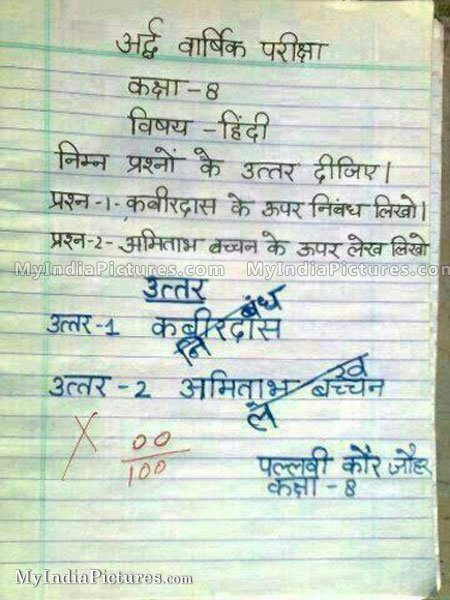 अर्द्ध वार्षिक परीक्षा
कक्षा - 8
विषय - हिंदी
निम्न प्रश्नों के उत्तर दीजिए।
प्रश्न -1- कबीरदास के ऊपर निबंध लिखो।
प्रश्न -2- अमिताभ बच्चन के ऊपर लेख लिखो
MyIndiaPictures.com MyIndiaPictures.com
उत्तर
उत्तर -1 कबीरदास
निबंध
उत्तर -2 अमिताभ बच्चन
लेख
X 00
100
पल्लवी कौर जौहर
कक्षा - 8
MyIndiaPictures.com